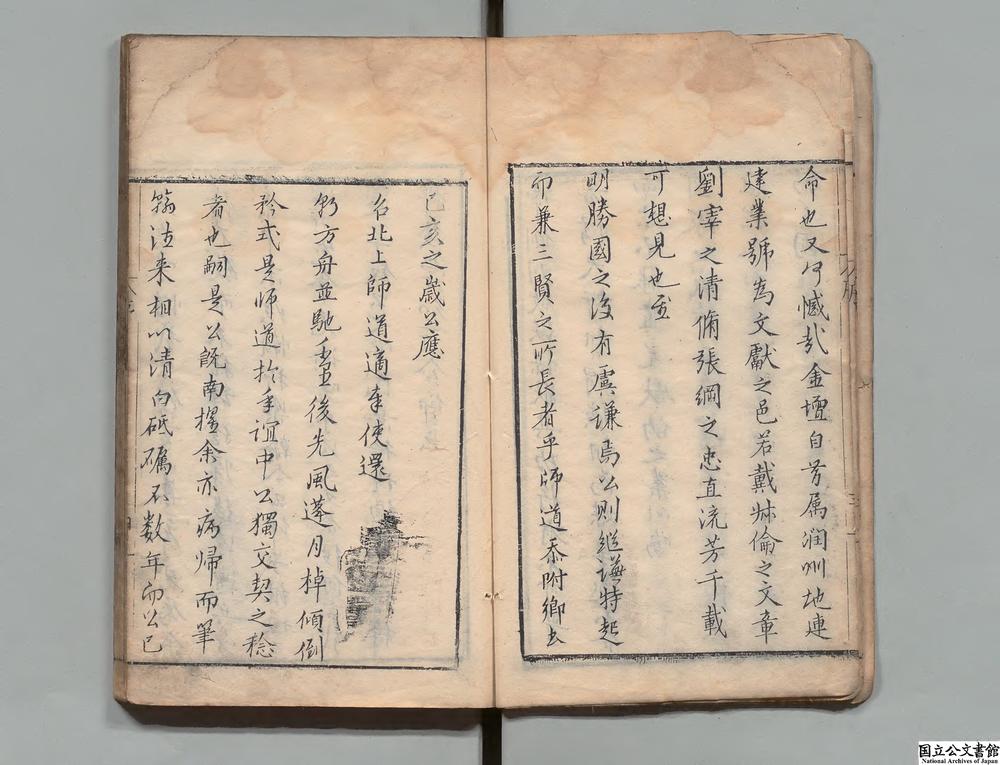 命也又何憾哉金壇自昔属润州地連
建業號為文獻之邑若戴叔倫之文章
劉宰之清脩張綱之忠直流芳千載
可想見也至
明勝國之後有虞謙焉公則繼謙特起
而兼三賢之所長者乎師道忝附鄉去
己亥之歲公應
召北上師道適奉使還
朝方舟並馳後先風蓬月棹傾倒
矜式是師道於年誼中公獨交契之稔
者也嗣是公既南擢余亦病歸而筆
翰往来相以清白砥礪不数年而公已
国立公文書館
National Archives of Japan